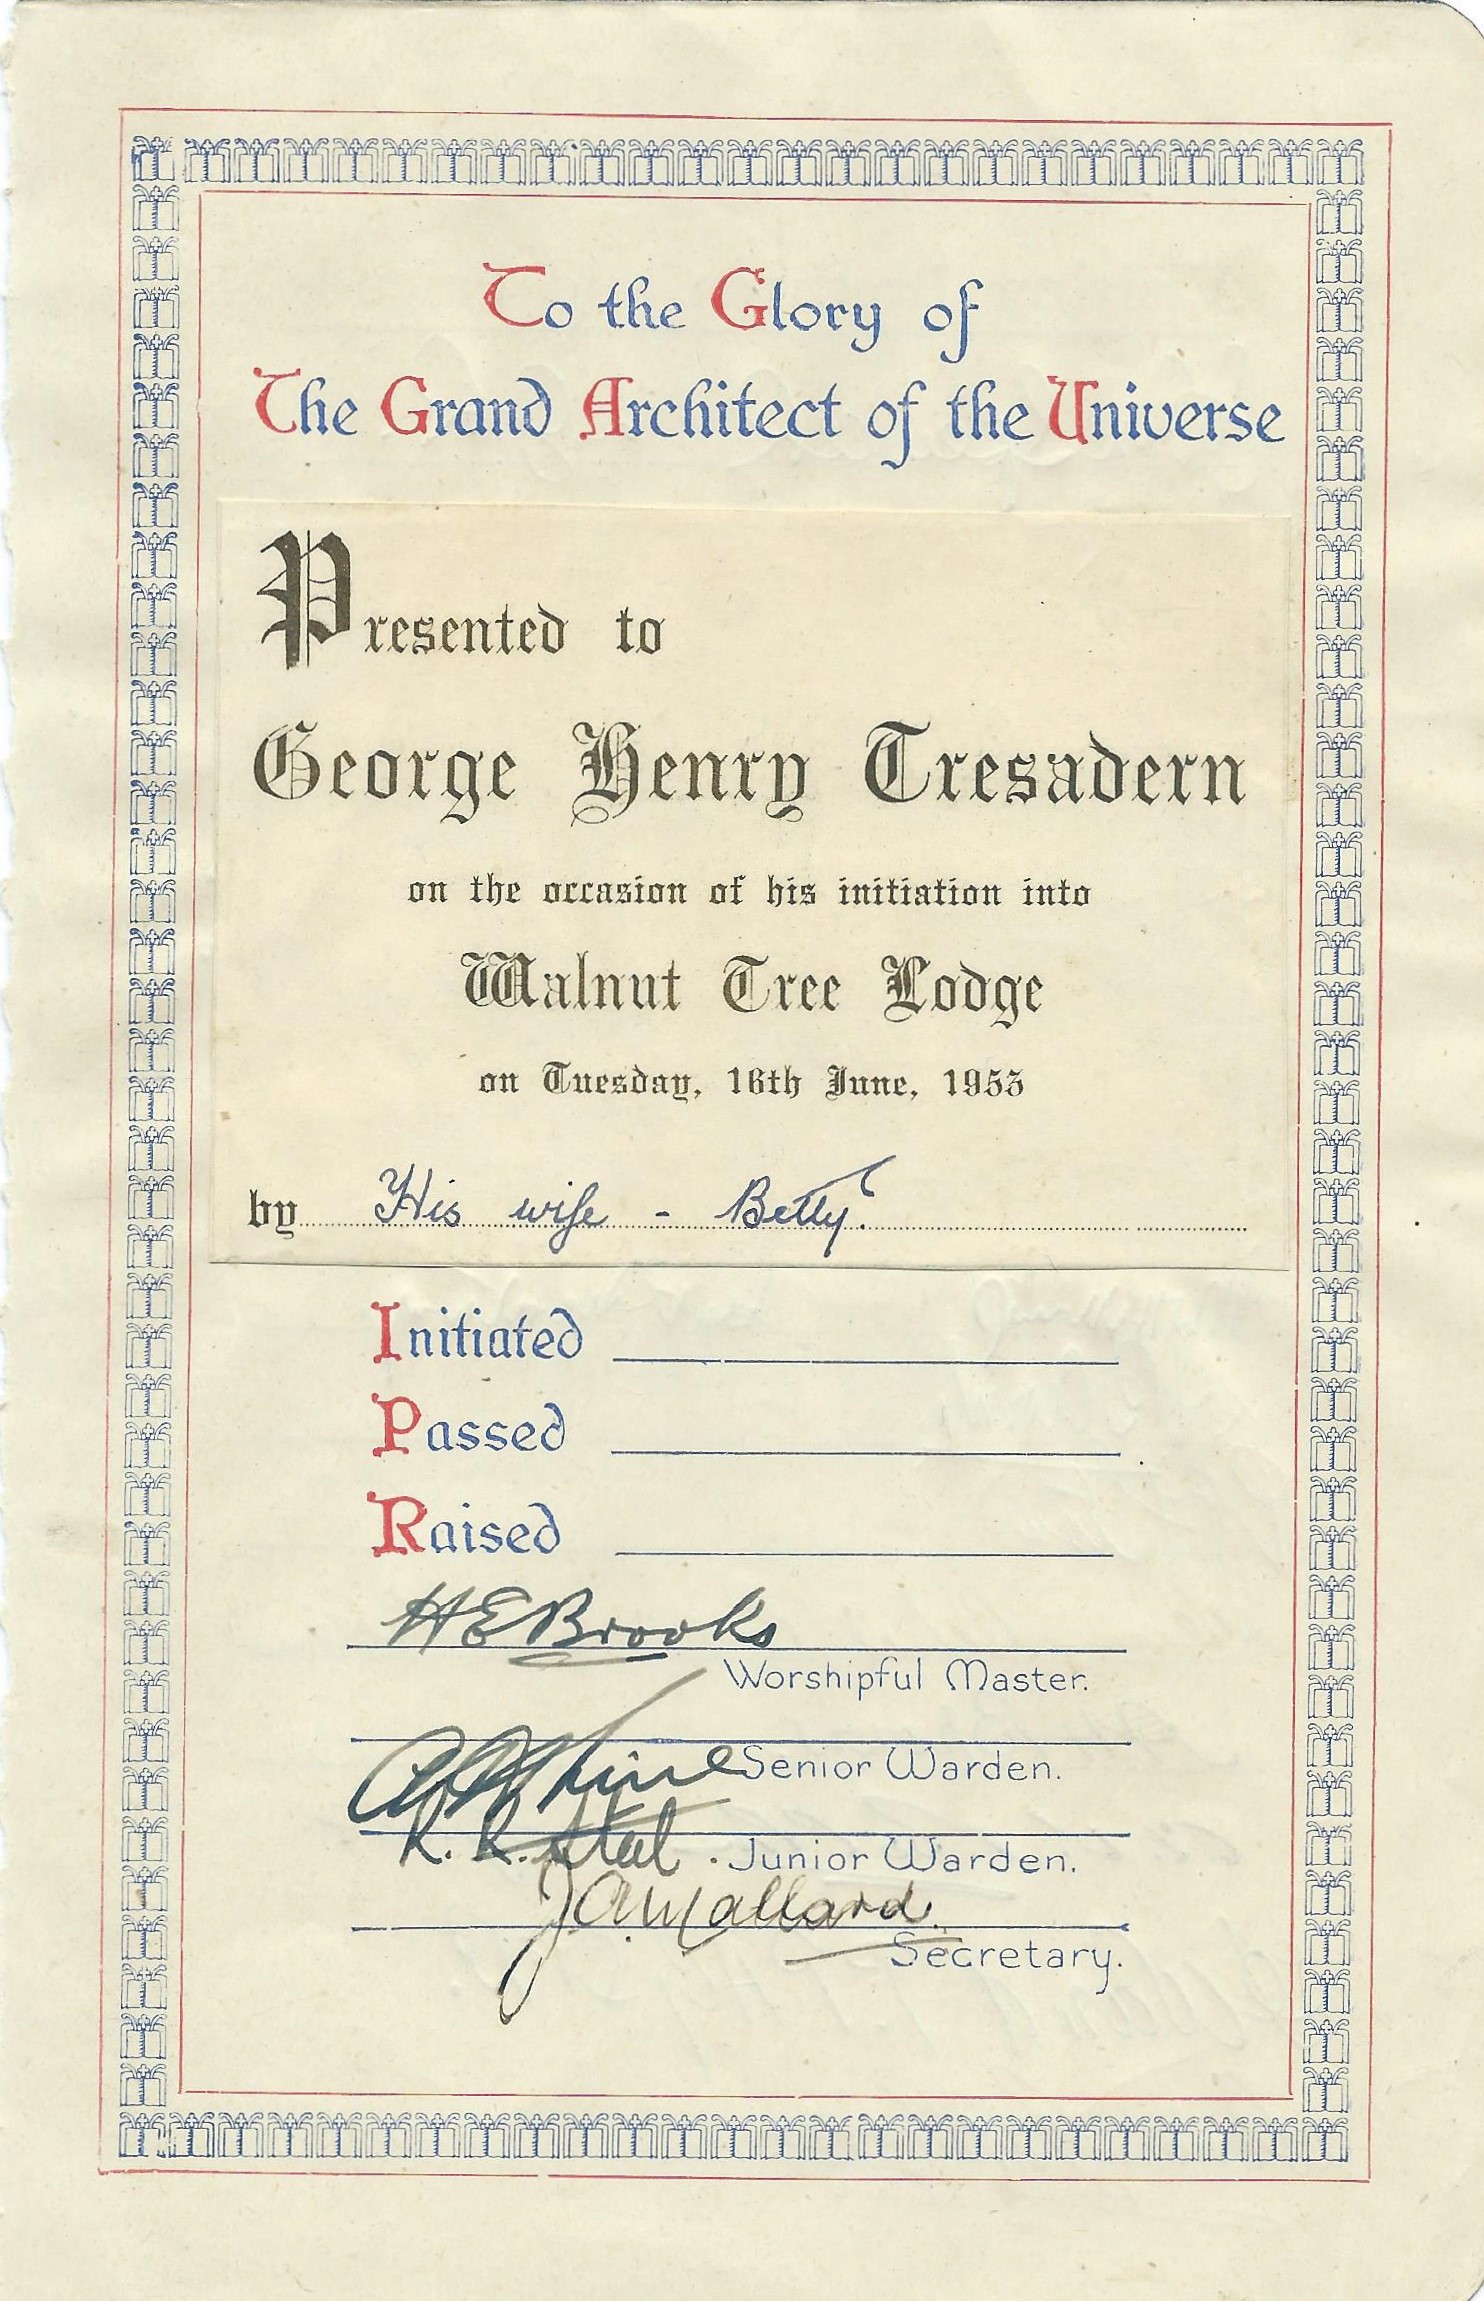 To the Glory of
The Grand Architect of the Universe
Presented to
George Henry Tresadern
on the occasion of his initiation into
Walnut Tree Lodge
on Tuesday, 16th June, 1953
by His wife - Betty.
Initiated
Passed
Raised
H E Brooks
Worshipful Master.
Senior Warden.
Junior Warden.
J A Mallard.
Secretary.